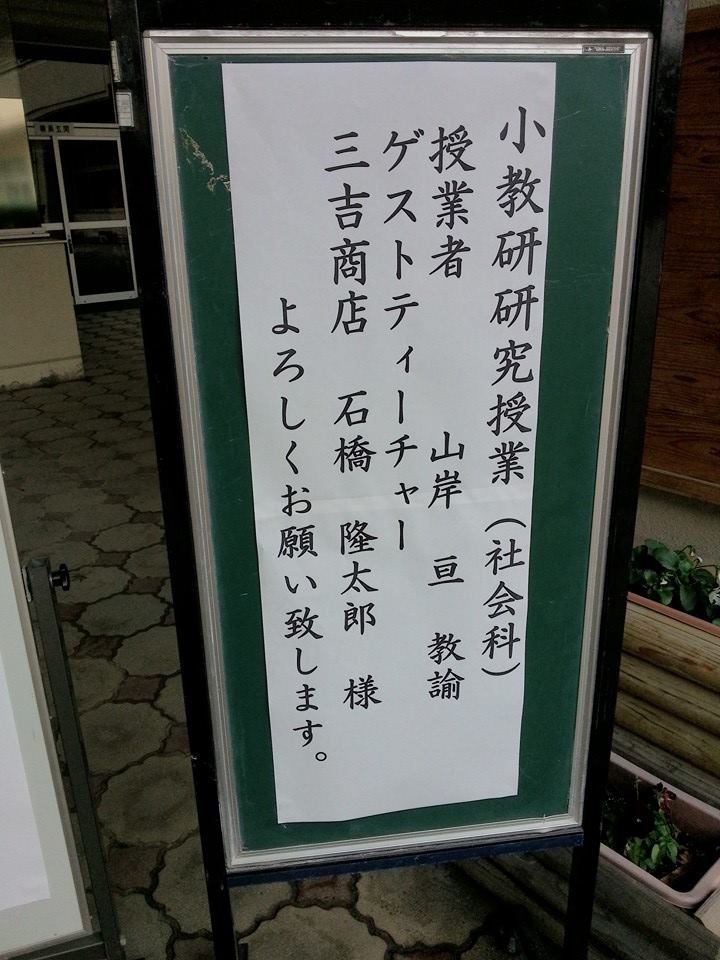 小教研研究授業（社会科）
授業者　山岸　亘　教諭
ゲストティーチャー
三吉商店　石橋　隆太郎　様
よろしくお願い致します。